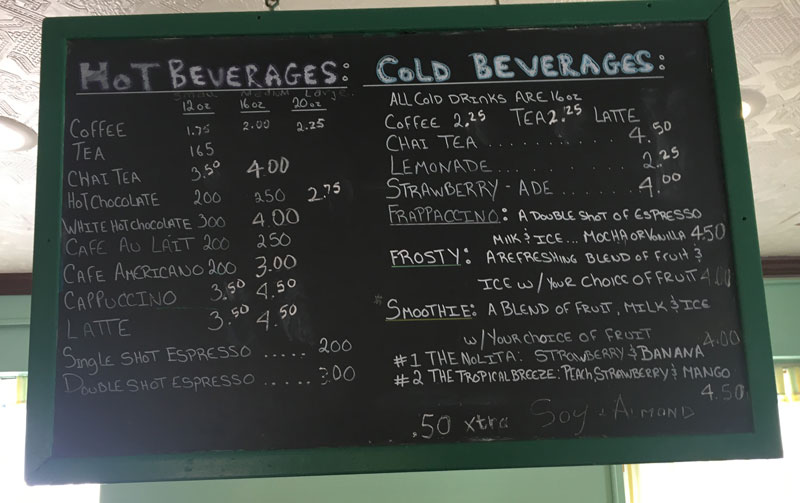 HOT BEVERAGES:
Small Medium Large
12oz 16oz 20oz
COFFEE 1.75 2.00 2.25
TEA 165
CHAI TEA 3.50 4.00
HOT CHOCOLATE 200 250 2.75
WHITE HOT CHOCOLATE 300 4.00
CAFE AU LAIT 200 250
CAFE AMERICANO 200 3.00
CAPPUCCINO 3.50 4.50
LATTE 3.50 4.50
SINGLE SHOT ESPRESSO ..... 200
DOUBLE SHOT ESPRESSO ..... 300
COLD BEVERAGES:
ALL COLD DRINKS ARE 16oz
COFFEE 2.25 TEA 2.25 LATTE
CHAI TEA .......... 4.50
LEMONADE .......... 2.25
STRAWBERRY - ADE ...... 4.00
FRAPPACCINO: A DOUBLE SHOT OF ESPRESSO
MILK & ICE... MOCHA OR VANILLA 4.50
FROSTY: A REFRESHING BLEND OF FRUIT &
ICE W/ YOUR CHOICE OF FRUIT 4.00
SMOOTHIE: A BLEND OF FRUIT, MILK & ICE
W/ YOUR CHOICE OF FRUIT 4.00
#1 THE NOLITA: STRAWBERRY & BANANA
#2 THE TROPICAL BREEZE: PEACH, STRAWBERRY & MANGO
4.50
.50 xtra Soy + ALMOND